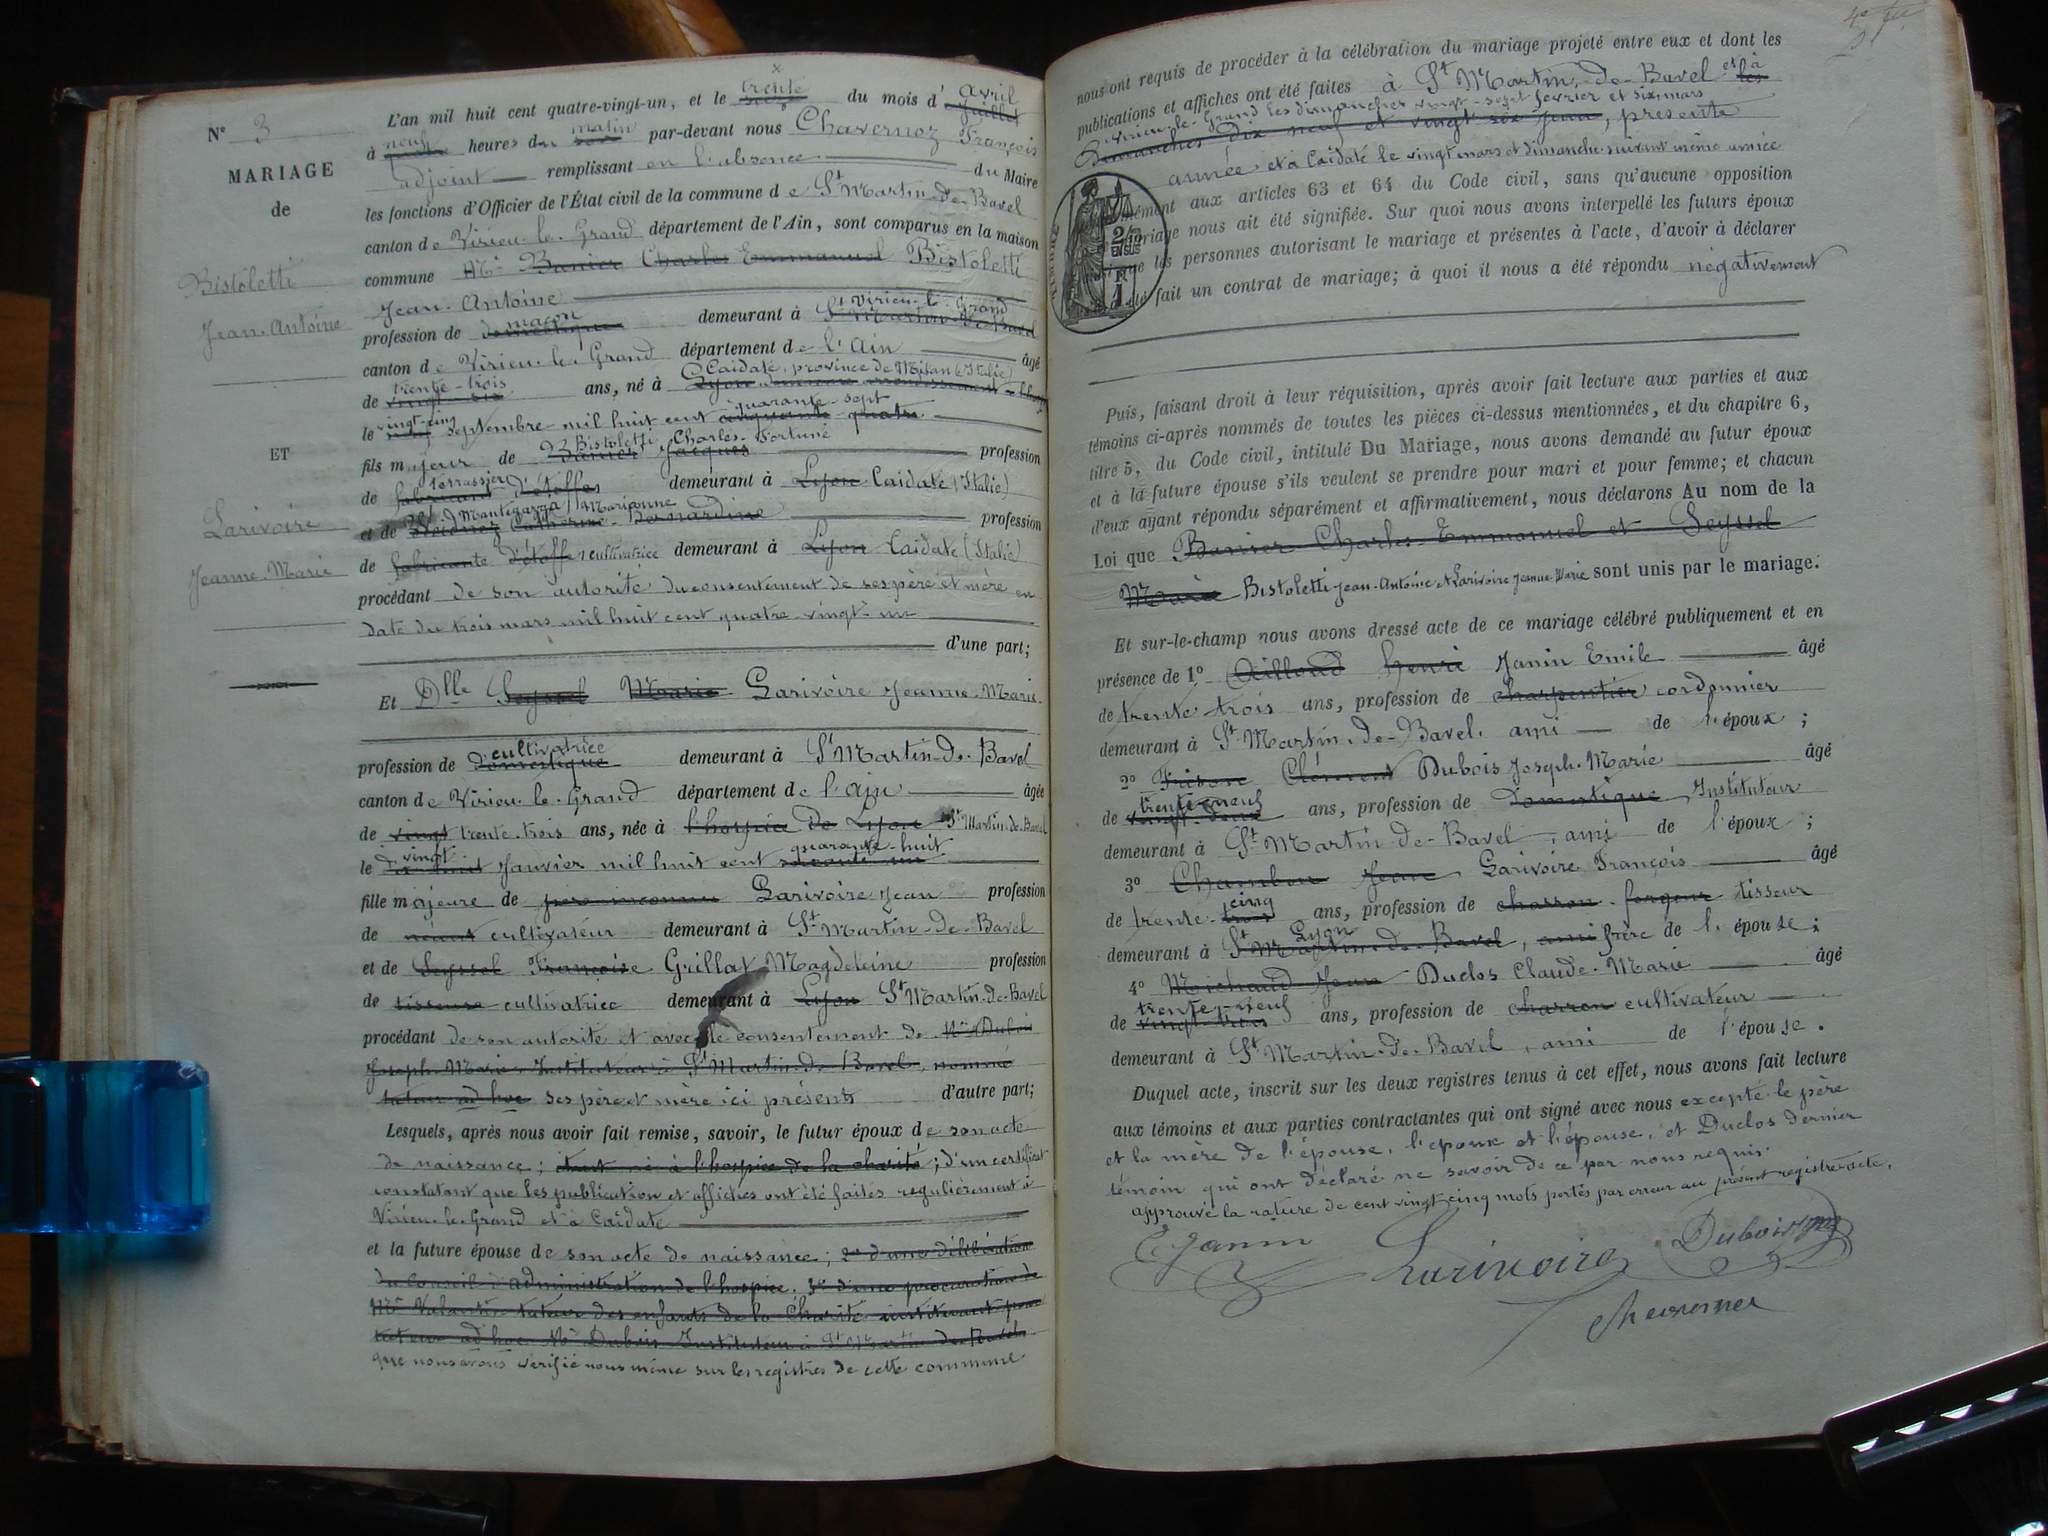 N° 3
MARIAGE
de
Bistoletti
Jean-Antoine
ET
Larivoire
Jeanne-Marie
L'an mil huit cent quatre-vingt-un, et le trente du mois d'avril
à neuf heures du matin par-devant nous Chavernoz François
adjoint remplissant en l'absence du Maire
les fonctions d'Officier de l'État civil de la commune de St Martin-de-Bavel
canton de Virieu-le-Grand département de l'Ain, sont comparus en la maison
commune Mr Banier Charles Emmanuel Bistoletti
Jean-Antoine
profession de maçon domestique demeurant à Virieu-le-Grand St Martin-de-Bavel
canton de Virieu-le-Grand département de l'Ain âgé
de trente-trois vingt-six ans, né à Caidate, province de Milan (Italie) Lyon
le vingt-cinq septembre mil huit cent quarante-sept cinquante-quatre
fils majeur de Bistoletti Charles-Fortuné Banier Jacques profession
de terrassier fabricant d'étoffes demeurant à Lyon Caidate (Italie)
et de Mantegazza Marianne Catherine Bernardine profession
de fabricante d'étoffe cultivatrice demeurant à Lyon Caidate (Italie)
procédant de son autorité du consentement de ses père et mère en
date du trois mars mil huit cent quatre-vingt-un
d'une part;
Et Dlle Seyssel Marie Larivoire Jeanne-Marie
profession de cultivatrice domestique demeurant à St Martin-de-Bavel
canton de Virieu-le-Grand département de l'Ain âgée
de vingt trente-trois ans, née à l'hospice de Lyon St Martin-de-Bavel
le vingt Janvier mil huit cent quarante-huit soixante un
fille majeure de père inconnu Larivoire Jean profession
de néant cultivateur demeurant à St Martin-de-Bavel
et de Seyssel Françoise Grillat Magdeleine profession
de tisseuse cultivatrice demeurant à Lyon St Martin-de-Bavel
procédant de son autorité et avec le consentement de Mr Dubois
Joseph-Marie Instituteur à St Martin-de-Bavel, nommé
tuteur ad hoc ses père et mère ici présents d'autre part;
Lesquels, après nous avoir fait remise, savoir, le futur époux de son acte
de naissance; à l'hospice de la charité; d'un certificat
constatant que les publication et affiches ont été faites regulièrement à
Virieu-le-Grand et à Caidate
et la future épouse de son acte de naissance; 2° d'une délibération
du Conseil d'administration de l'hospice, 3° d'une procuration de
Mr tuteur des enfants de la Charité instituant pour
tuteur ad hoc Mr Dubois Instituteur à St Martin-de-Bavel
que nous avons vérifié nous même sur les registres de cette commune
nous ont requis de procéder à la célébration du mariage projeté entre eux et dont les
publications et affiches ont été faites à St Martin-de-Bavel et à les
Virieu-le-Grand les dimanches vingt-sept fevrier et six mars
Dimanches dix neuf et vingt six juin, présente
année et à Caidate le vingt mars et dimanche suivant même année
mément aux articles 63 et 64 du Code civil, sans qu'aucune opposition
riage nous ait été signifiée. Sur quoi nous avons interpellé les futurs époux
que les personnes autorisant le mariage et présentes à l'acte, d'avoir à déclarer
été fait un contrat de mariage; à quoi il nous a été répondu négativement
Puis, faisant droit à leur réquisition, après avoir fait lecture aux parties et aux
témoins ci-après nommés de toutes les pièces ci-dessus mentionnées, et du chapitre 6,
titre 5, du Code civil, intitulé Du Mariage, nous avons demandé au futur époux
et à la future épouse s'ils veulent se prendre pour mari et pour femme; et chacun
d'eux ayant répondu séparément et affirmativement, nous déclarons Au nom de la
Loi que Banier Charles-Emmanuel et Seyssel
Marie Bistoletti Jean-Antoine et Larivoire Jeanne-Marie sont unis par le mariage.
Et sur-le-champ nous avons dressé acte de ce mariage célébré publiquement et en
présence de 1° Ailloud Henri Janin Emile âgé
de trente trois ans, profession de charpentier cordonnier
demeurant à St Martin-de-Bavel, ami de l'époux;
2° Clément Dubois Joseph-Marie âgé
de trente-neuf vingt-deux ans, profession de domestique Instituteur
demeurant à St Martin-de-Bavel, ami de l'époux;
3° Chambon Jean Larivoire François âgé
de trente-cinq trois ans, profession de charron-forgeur tisseur
demeurant à Lyon St Martin-de-Bavel, ami frère de l'épouse;
4° Michaud Jean Duclos Claude-Marie âgé
de trente-neuf vingt-trois ans, profession de charron cultivateur
demeurant à St Martin-de-Bavel, ami de l'épouse.
Duquel acte, inscrit sur les deux registres tenus à cet effet, nous avons fait lecture
aux témoins et aux parties contractantes qui ont signé avec nous excepté le père
et la mère de l'épouse, l'époux et l'épouse, et Duclos dernier
témoin qui ont déclaré ne savoir de ce par nous requis.
approuvé la rature de cent vingt-cinq mots portés par erreur au présent registre acte.
E Janin
Larivoire
Dubois
Chavernoz